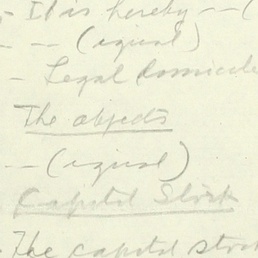 - It is hereby -- (
- -- (igual)
- Legal Domicile
The objects
-- (igual)
Capital Stock
- The capital stock